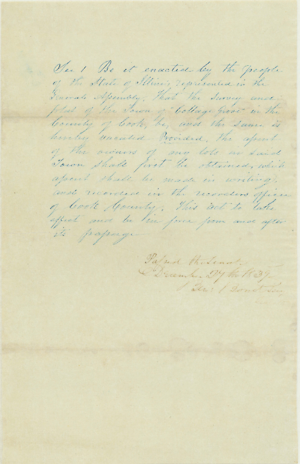 Sec 1 Be it enacted by the people
of the State of Illinois represented in the
General Assembly, That the survey and
plat of the Town of "Cottage Grove" in the
County of Cook, be, and the same is
hereby vacated. Provided, the
of the owners of lots in said
Town shall first be obtained, which
shall be made in writing,
and recorded in the recorders office
of Cook County. This act to take
effect and be in force from and after
its passage.
Senate
27th 1839